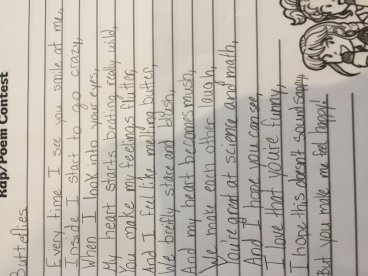 Rap/Poem Contest
Butterflies
Every time I see you smile at me,
Inside I start to go crazy,
When I look into your eyes,
My heart starts beating really wild,
You make my feelings flutter,
And I feel like melting butter,
We briefly stare and blush,
And my heart becomes mush,
We make each other laugh,
You're great at science and math,
And I hope you can see,
I love that you're funny,
I hope this doesn't sound sappy,
But you make me feel happy!